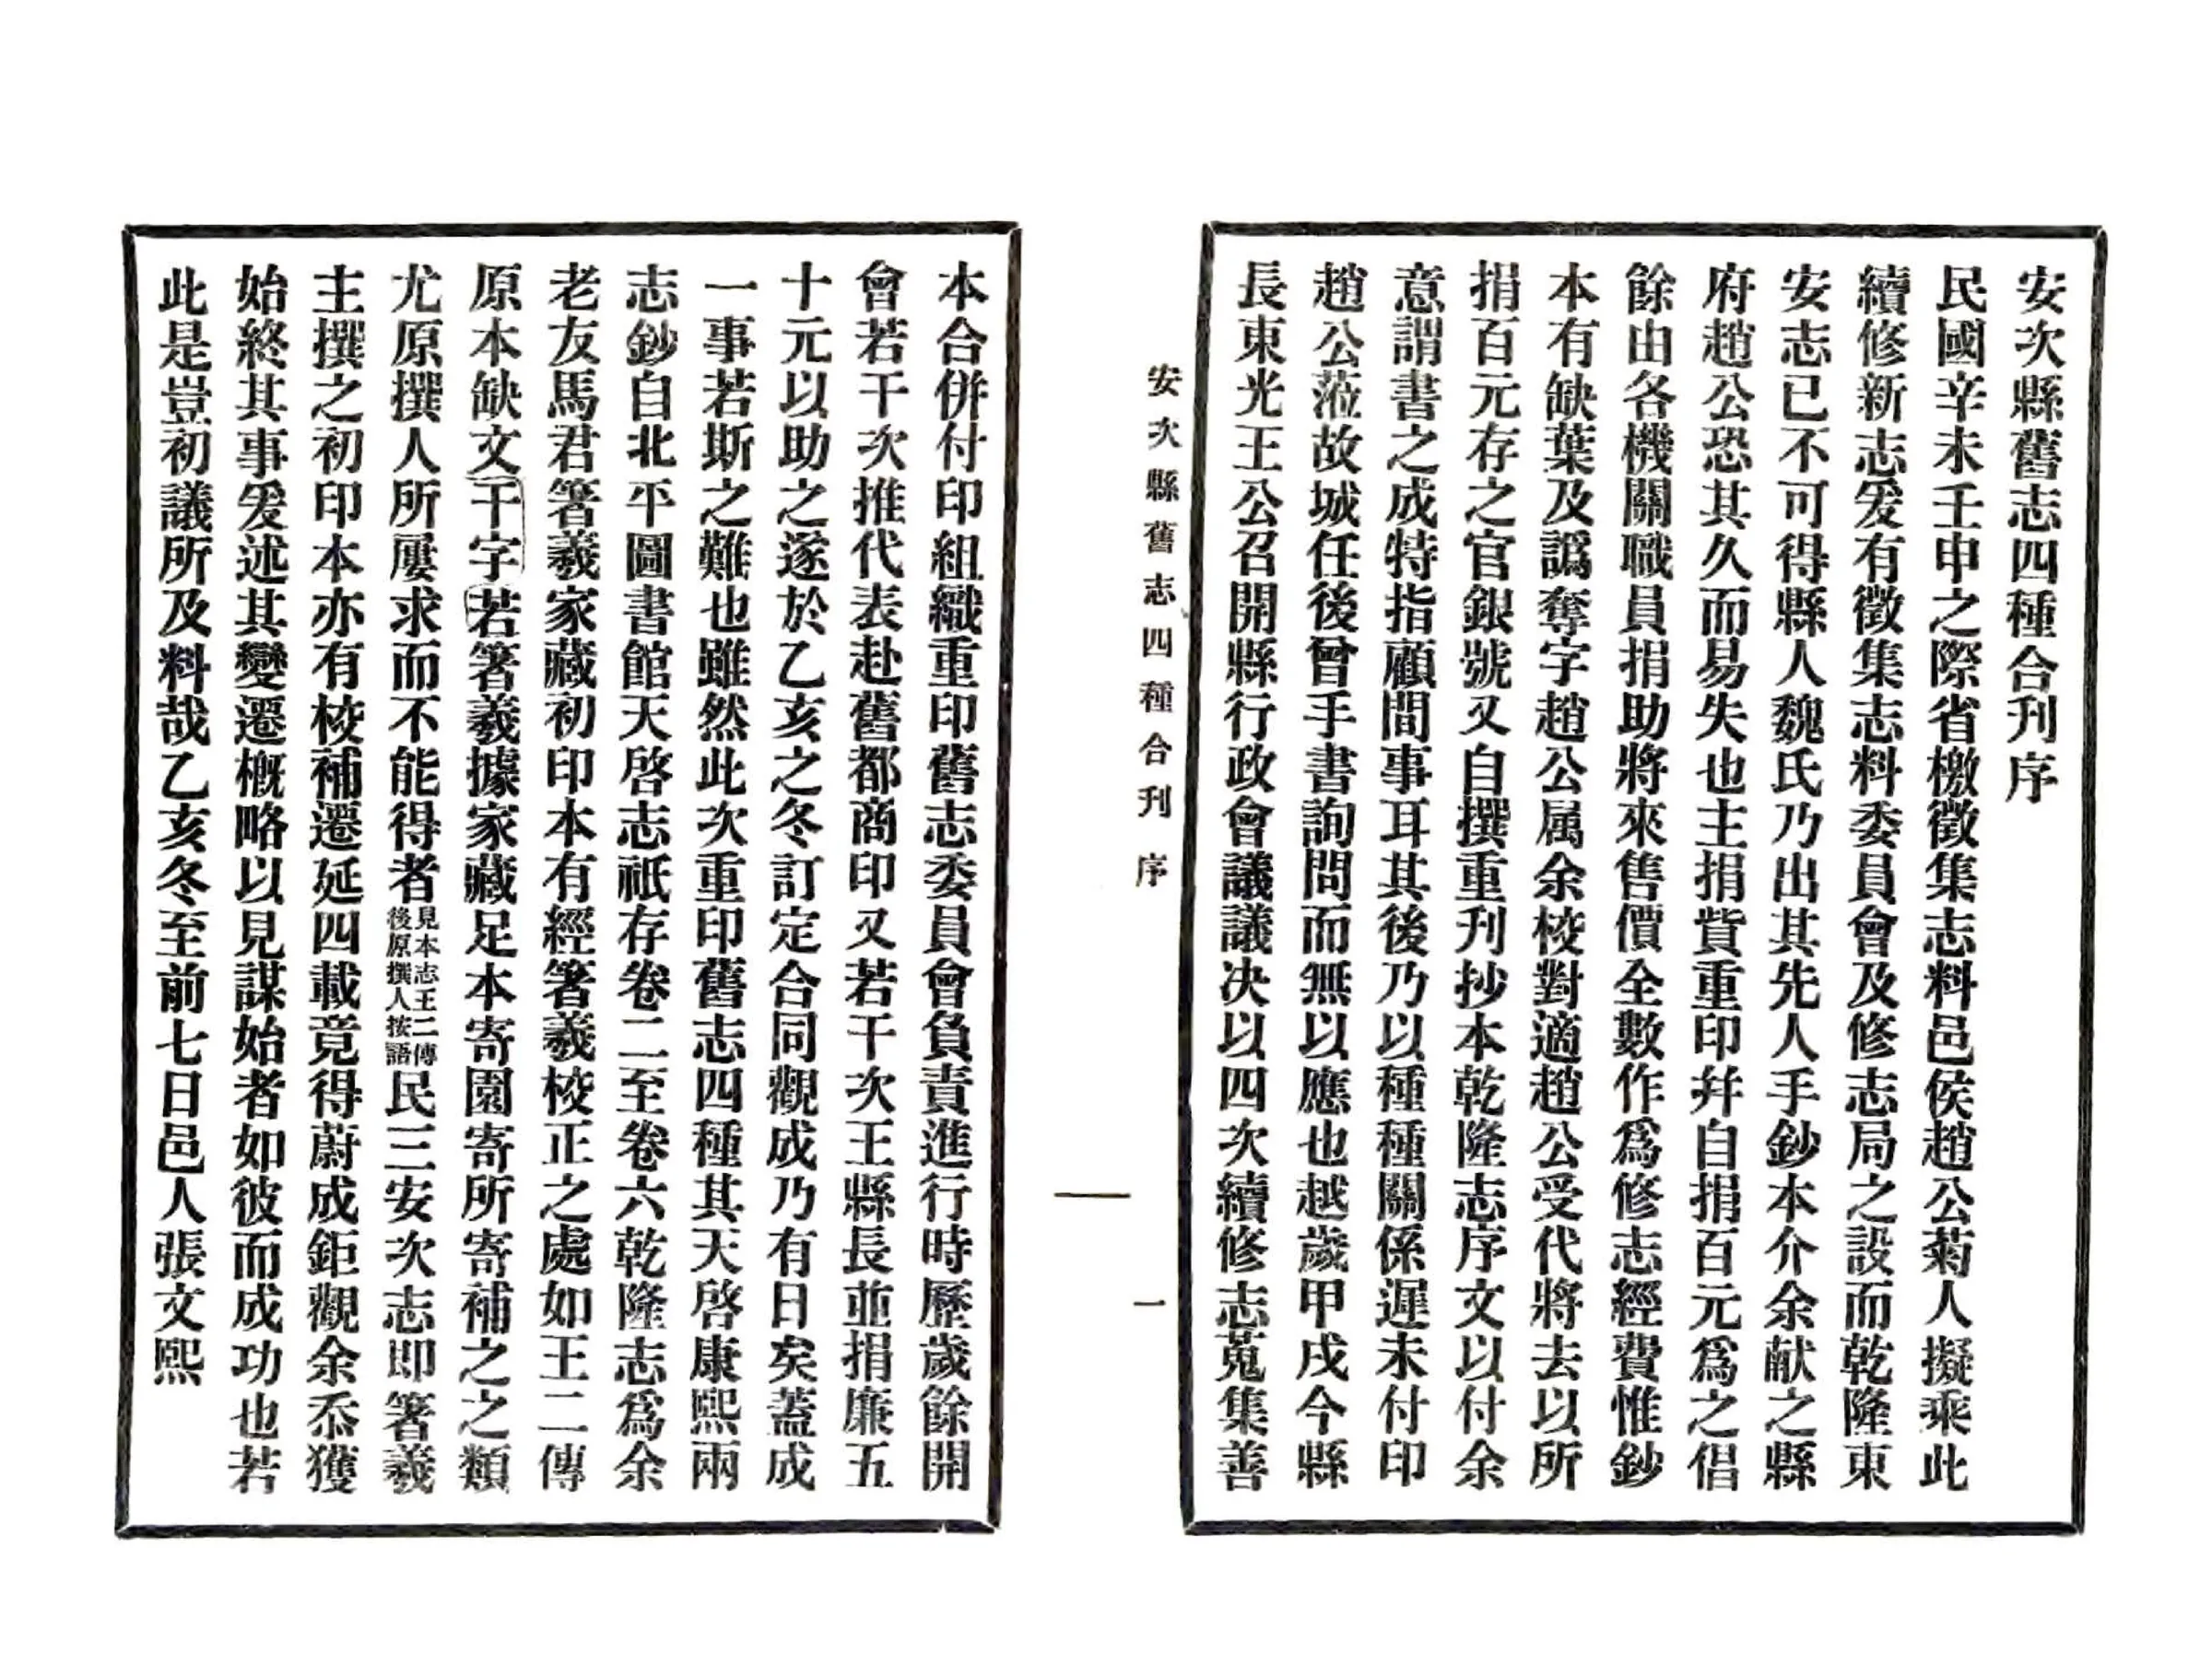 安次縣舊志四種合刊序
民國辛未壬申之際省檄徵集志料邑侯趙公菊人擬乘此
續修新志爰有徵集志料委員會及修志局之設而乾隆東
安志已不可得縣人魏氏乃出其先人手鈔本介余献之縣
府趙公恐其久而易失也主捐貲重印并自捐百元爲之倡
餘由各機關職員捐助將來售價全數作爲修志經費惟鈔
本有缺葉及譌奪字趙公属余校對適趙公受代將去以所
捐百元存之官銀號又自撰重刊抄本乾隆志序文以付余
意謂書之成特指顧間事耳其後乃以種種關係遲未付印
趙公蒞故城任後曾手書詢問而無以應也越歲甲戌今縣
長東光王公召開縣行政會議議决以四次續修志蒐集善
安次縣舊志四種合刊 序
一
本合併付印組織重印舊志委員會負責進行時歷歲餘開
會若干次推代表赴舊都商印又若干次王縣長並捐廉五
十元以助之遂於乙亥之冬訂定合同觀成乃有日矣蓋成
一事若斯之難也雖然此次重印舊志四種其天啓康熙兩
志鈔自北平圖書館天啓志祇存卷二至卷六乾隆志爲余
老友馬君箸羲家藏初印本有經箸羲校正之處如王二傳
原本缺文千字若箸羲據家藏足本寄園寄所寄補之之類
尤原撰人所屢求而不能得者見本志王二傳後原撰人按語民三安次志即箸羲
主撰之初印本亦有校補遷延四載竟得蔚成鉅觀余忝獲
始終其事爰述其變遷概略以見謀始者如彼而成功也若
此是豈初議所及料哉乙亥冬至前七日邑人張文熙